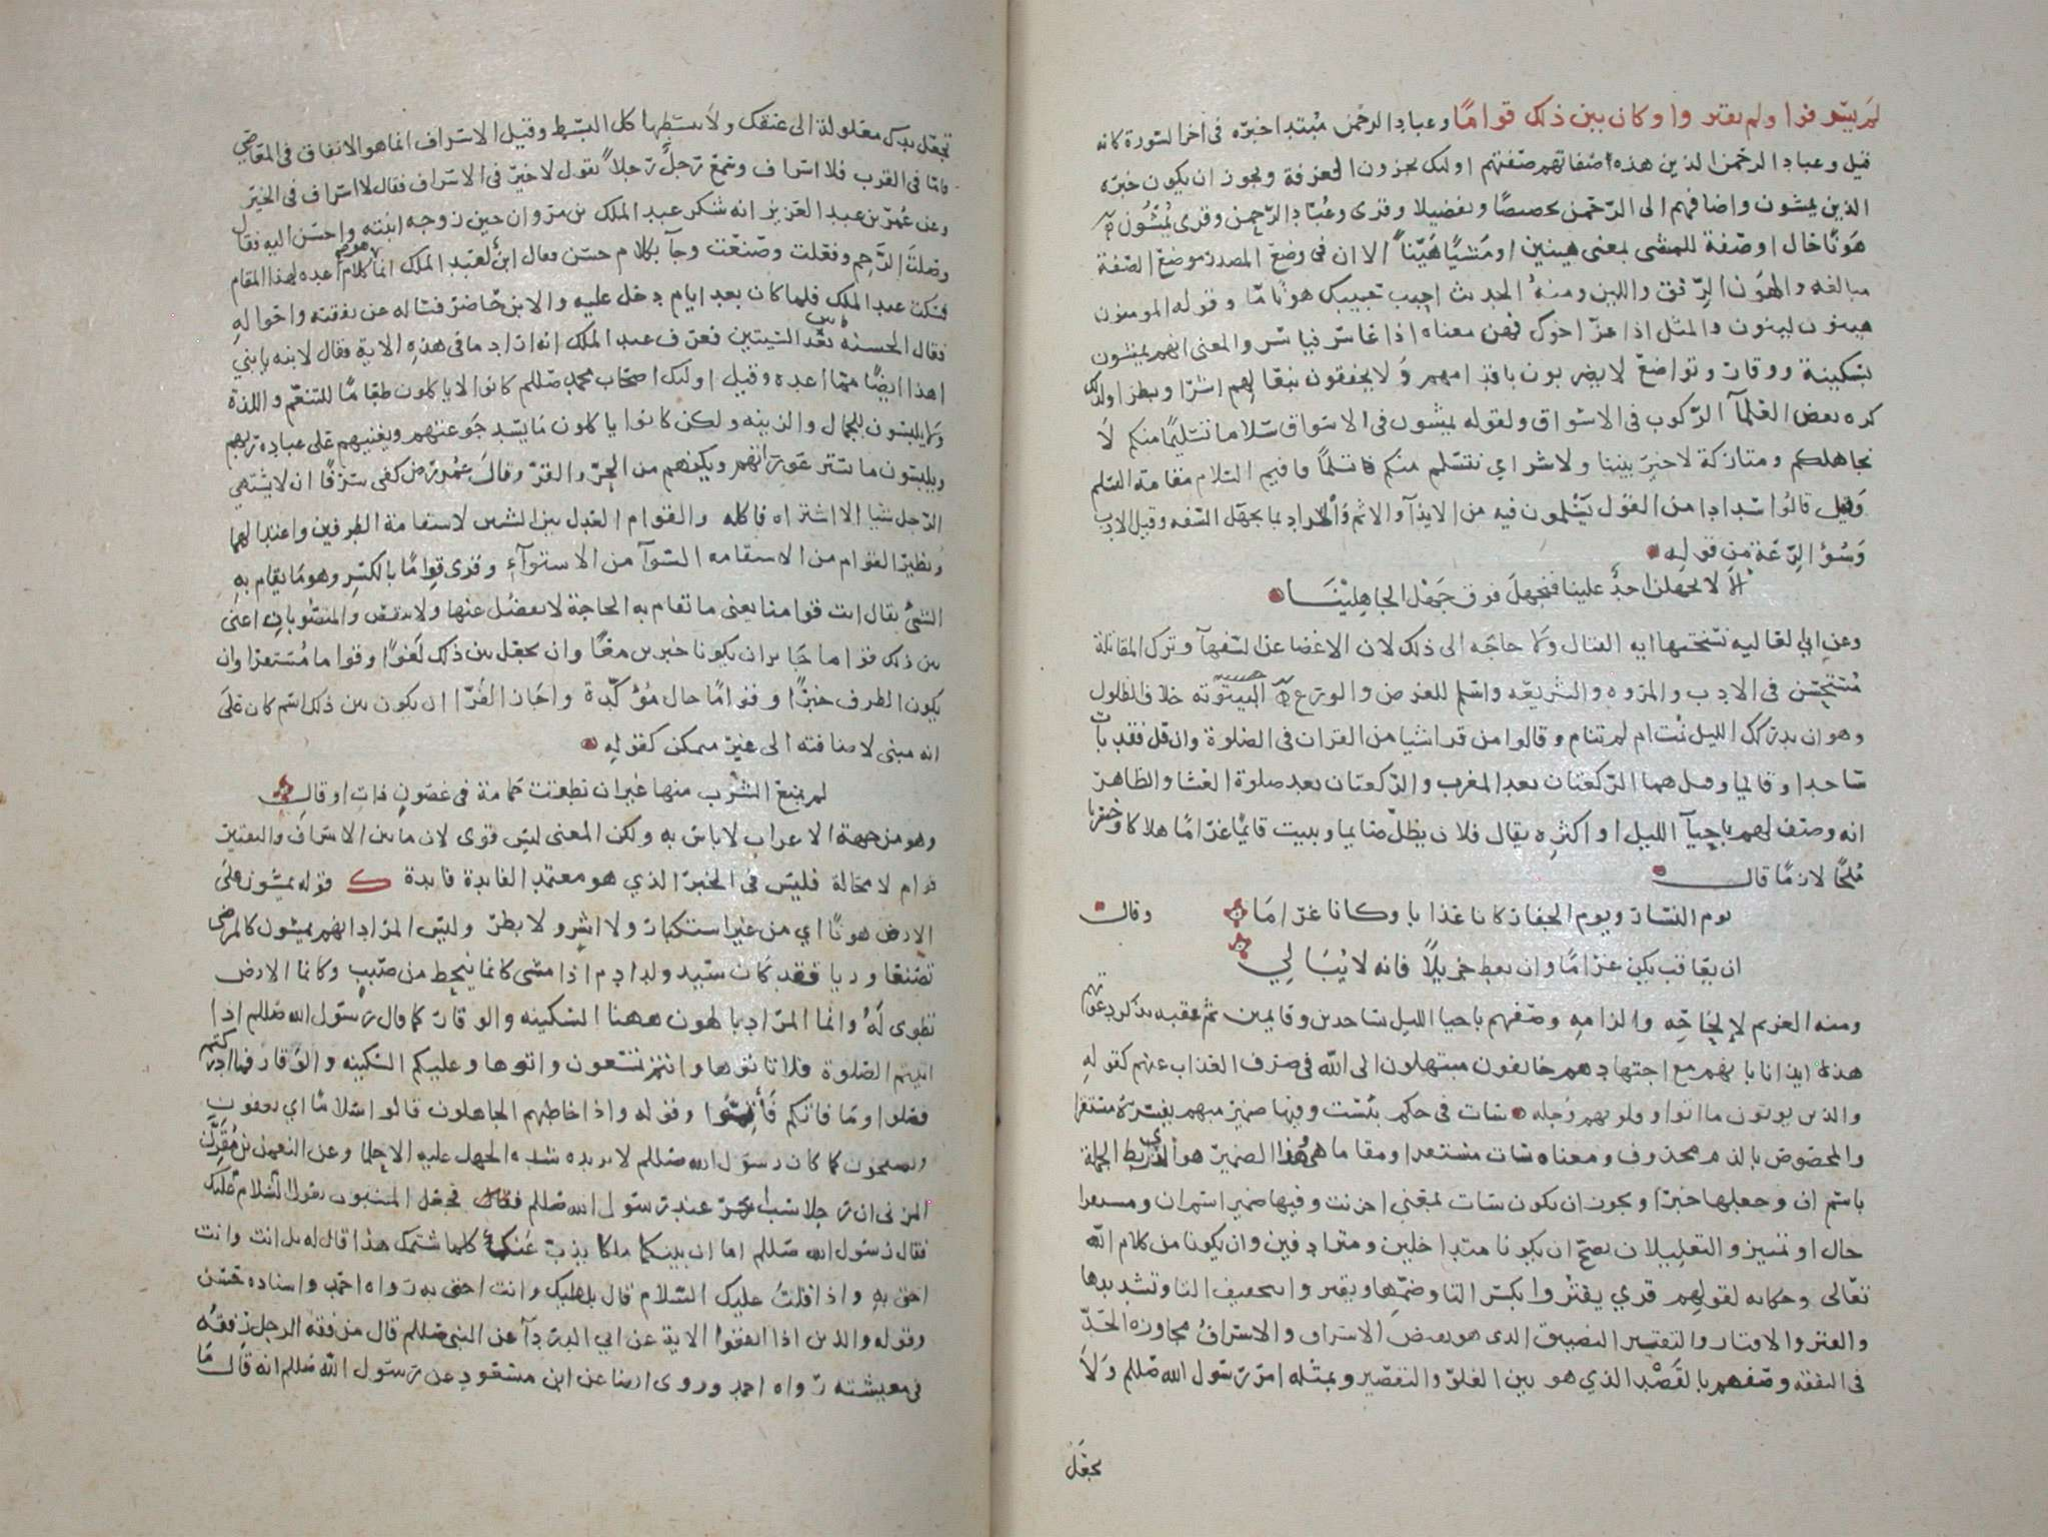 لم يسرفوا ولم يقتروا وكان بين ذلك قواما وعباد الرحمن مبتدا خبره في اخر السورة كانه
قيل وعباد الرحمن الذين هذه صفاتهم صفتهم اوليك يجزون الغرفة ويجوز ان يكون خبره
الذين يمشون واضافهم الى الرحمن تخصيصا وتفضيلا وقرى وعباد الرحمن وقرى يمشون
هونا حال او صفة للمشى بمعنى هينين او مشيا هينا الا ان في وضع المصدر موضع الصفة
مبالغه والهون الرفق واللين ومنه الحديث احبب حبيبك هونا ما وقوله المومنون
هينون لينون والمثل اذا عز اخوك فهن معناه اذا عاسر فياسر والمعنى انهم يمشون
بسكينة ووقار وتواضع لا يضربون باقدامهم ولا يخفقون بنعالهم اشرا وبطرا ولذلك
كره بعض العلمآ الركوب في الاسواق ولقوله يمشون في الاسواق سلاما تسليما منكم لا
نجاهلكم ومتاركة لا خير بيننا ولا شر اي نتسلم منكم تسلما فاقيم السلام مقامه التسلم
وقيل قالوا سدادا من القول يسلمون فيه من الايذآ والاثم والمراد بما يجهل السفه وقيل الادب
وسوء الرعة من قوله
الا لا يجهلن احد علينا فنجهل فوق جهل الجاهلينا
وعن ابي العاليه نسختها ايه القتال ولا حاجه الى ذلك لان الاغضا عن السفهآ وترك المقابلة
مستحسن في الادب والمروه والشريعه واسلم للعرض والورع البيتوته خلاف الظلول
وهو ان يدركك الليل نمت ام لم تنم وقالوا من قرا شيا من القران في الصلوة وان قل فقد بات
ساجدا وقايما وقيل هما الركعتان بعد المغرب والركعتان بعد صلوة العشا والظاهر
انه وصف لهم باحيآ الليل او اكثره يقال فلان يظل صايما ويبيت قايما غراما هلاكا وخسرانا
ملحا لازما قال
يوم النسار ويوم الجفار كانا عذابا وكانا غراما وقال
ان يعاقب يكن غراما وان يعط جزيلا فانه لا يبالي
ومنه الغريم لالحاحه والزامه وصفهم باحيا الليل ساجدين وقايمين ثم عقبه بذكر دعوتهم
هذه ايذانا بانهم مع اجتهادهم خايفون مبتهلون الى الله في صرف العذاب عنهم كقوله
والذين يوتون ما اتوا وقلوبهم وجله سات في حكم بئست وفيها ضمير مبهم يفسره مستقرا
والمخصوص بالذم محذوف ومعناه سات مستقرا ومقاما هي وهذا الضمير هو الذي ربط الجملة
باسم ان وجعلها خبرا ويجوز ان يكون سات بمعنى احزنت وفيها ضمير اسم ان ومستقرا
حال او تمييز والتعليلان يصح ان يكونا متداخلين ومترادفين وان يكونا من كلام الله
تعالى وحكايه لقولهم قري يقتروا بكسر التا وضمها ويقتروا بتخفيف التا وتشديدها
والقتر والاقتار والتقتير التضييق الذى هو نقيض الاسراف والاسراف مجاوزه الحد
في النفقه وصفهم بالقصد الذي هو بين الغلو والتقصير وبمثله امر رسول الله صللم ولا
تجعل
تجعل يدك مغلولة الى عنقك ولا تبسطها كل البسط وقيل الاسراف انما هو الانفاق في المعاصي
فاما في القرب فلا اسراف وسمع رجل رجلا يقول لا خير في الاسراف فقال لا اسراف في الخير
وعن عمر بن عبد العزيز انه شكر عبد الملك بن مروان حين زوجه ابنته واحسن اليه فقال
وصلت الرحم وفعلت وصنعت وجآ بكلام حسن فقال ابن لعبد الملك انما هو كلام اعده لهذا المقام
فسكت عبد الملك فلما كان بعد ايام دخل عليه والابن حاضر فساله عن نفقته واحواله
فقال الحسنه بين السيتين فعرف عبد الملك انه اراد ما في هذه الاية فقال لابنه يا بني
اهذا ايضا مما اعده وقيل اوليك اصحاب محمد صللم كانوا لا ياكلون طعاما للتنعم واللذة
ولا يلبسون للجمال والزينه ولكن كانوا ياكلون ما يسد جوعتهم ويعينهم على عبادة ربهم
ويلبسون ما ستر عوراتهم ويكنهم من الحر والقر وقال عمر رض كفى سرفا ان لا يشتهي
الرجل شيا الا اشتراه فاكله والقوام العدل بين الشيين لاستقامة الطرفين واعتدالهما
ونظير القوام من الاستقامه السوآ من الاستوآء وقرى قواما بالكسر وهو ما يقام به
الشئ يقال انت قوامنا يعنى ما تقام به الحاجة لا يفضل عنها ولا ينقص والمنصوبان اعنى
بين ذلك قواما جايز ان يكونا خبرين معا وان يجعل بين ذلك لغوا وقواما مستقرا وان
يكون الظرف خبرا وقواما حال مؤكدة واجاز الفرا ان يكون بين ذلك اسم كان على
انه مبنى لاضافته الى غير متمكن كقوله
لم يمنع الشرب منها غير ان نطقت حمامة في غصون ذات اوقال
وهو من جهة الاعراب لا باس به ولكن المعنى ليس قوى لان ما بين الاسراف والتقتير
قوام لا محالة فليس في الخبر الذي هو معتمد الفايدة فايدة ك قوله يمشون على
الارض هونا اي من غير استكبار ولا اشر ولا بطر وليس المراد انهم يمشون كالمرضى
تصنعا وريا فقد كان سيد ولد ادم اذا مشى كانما ينحط من صبب وكانما الارض
تطوى له وانما المراد بالهون ههنا السكينه والوقار كما قال رسول الله صللم اذا
اتيتم الصلوة فلا تاتوها وانتم تسعون واتوها وعليكم السكينه والوقار فما ادركتم
فصلوا وما فاتكم فاتموا وقوله واذا خاطبهم الجاهلون قالوا سلاما اي يعفون
ويصفحون كما كان رسول الله صللم لا يزيده شدة الجهل عليه الا حلما وعن النعمن بن مقرن
المزنى ان رجلا سب رجلا عند رسول الله صللم فقال فجعل المسبوب يقول السلام عليك
فقال رسول الله صللم اما ان بينكما ملكا يذب عنك كلما شتمك هذا قال له بل انت وانت
احق به واذا قلت عليك السلام قال بل عليك وانت احق به رواه احمد واسناده حسن
وقوله والذين اذا انفقوا الاية عن ابي الدردآ عن النبي صللم قال من فقه الرجل رفقه
في معيشته رواه احمد وروى ايضا عن ابن مسعود عن رسول الله صللم انه قال ما